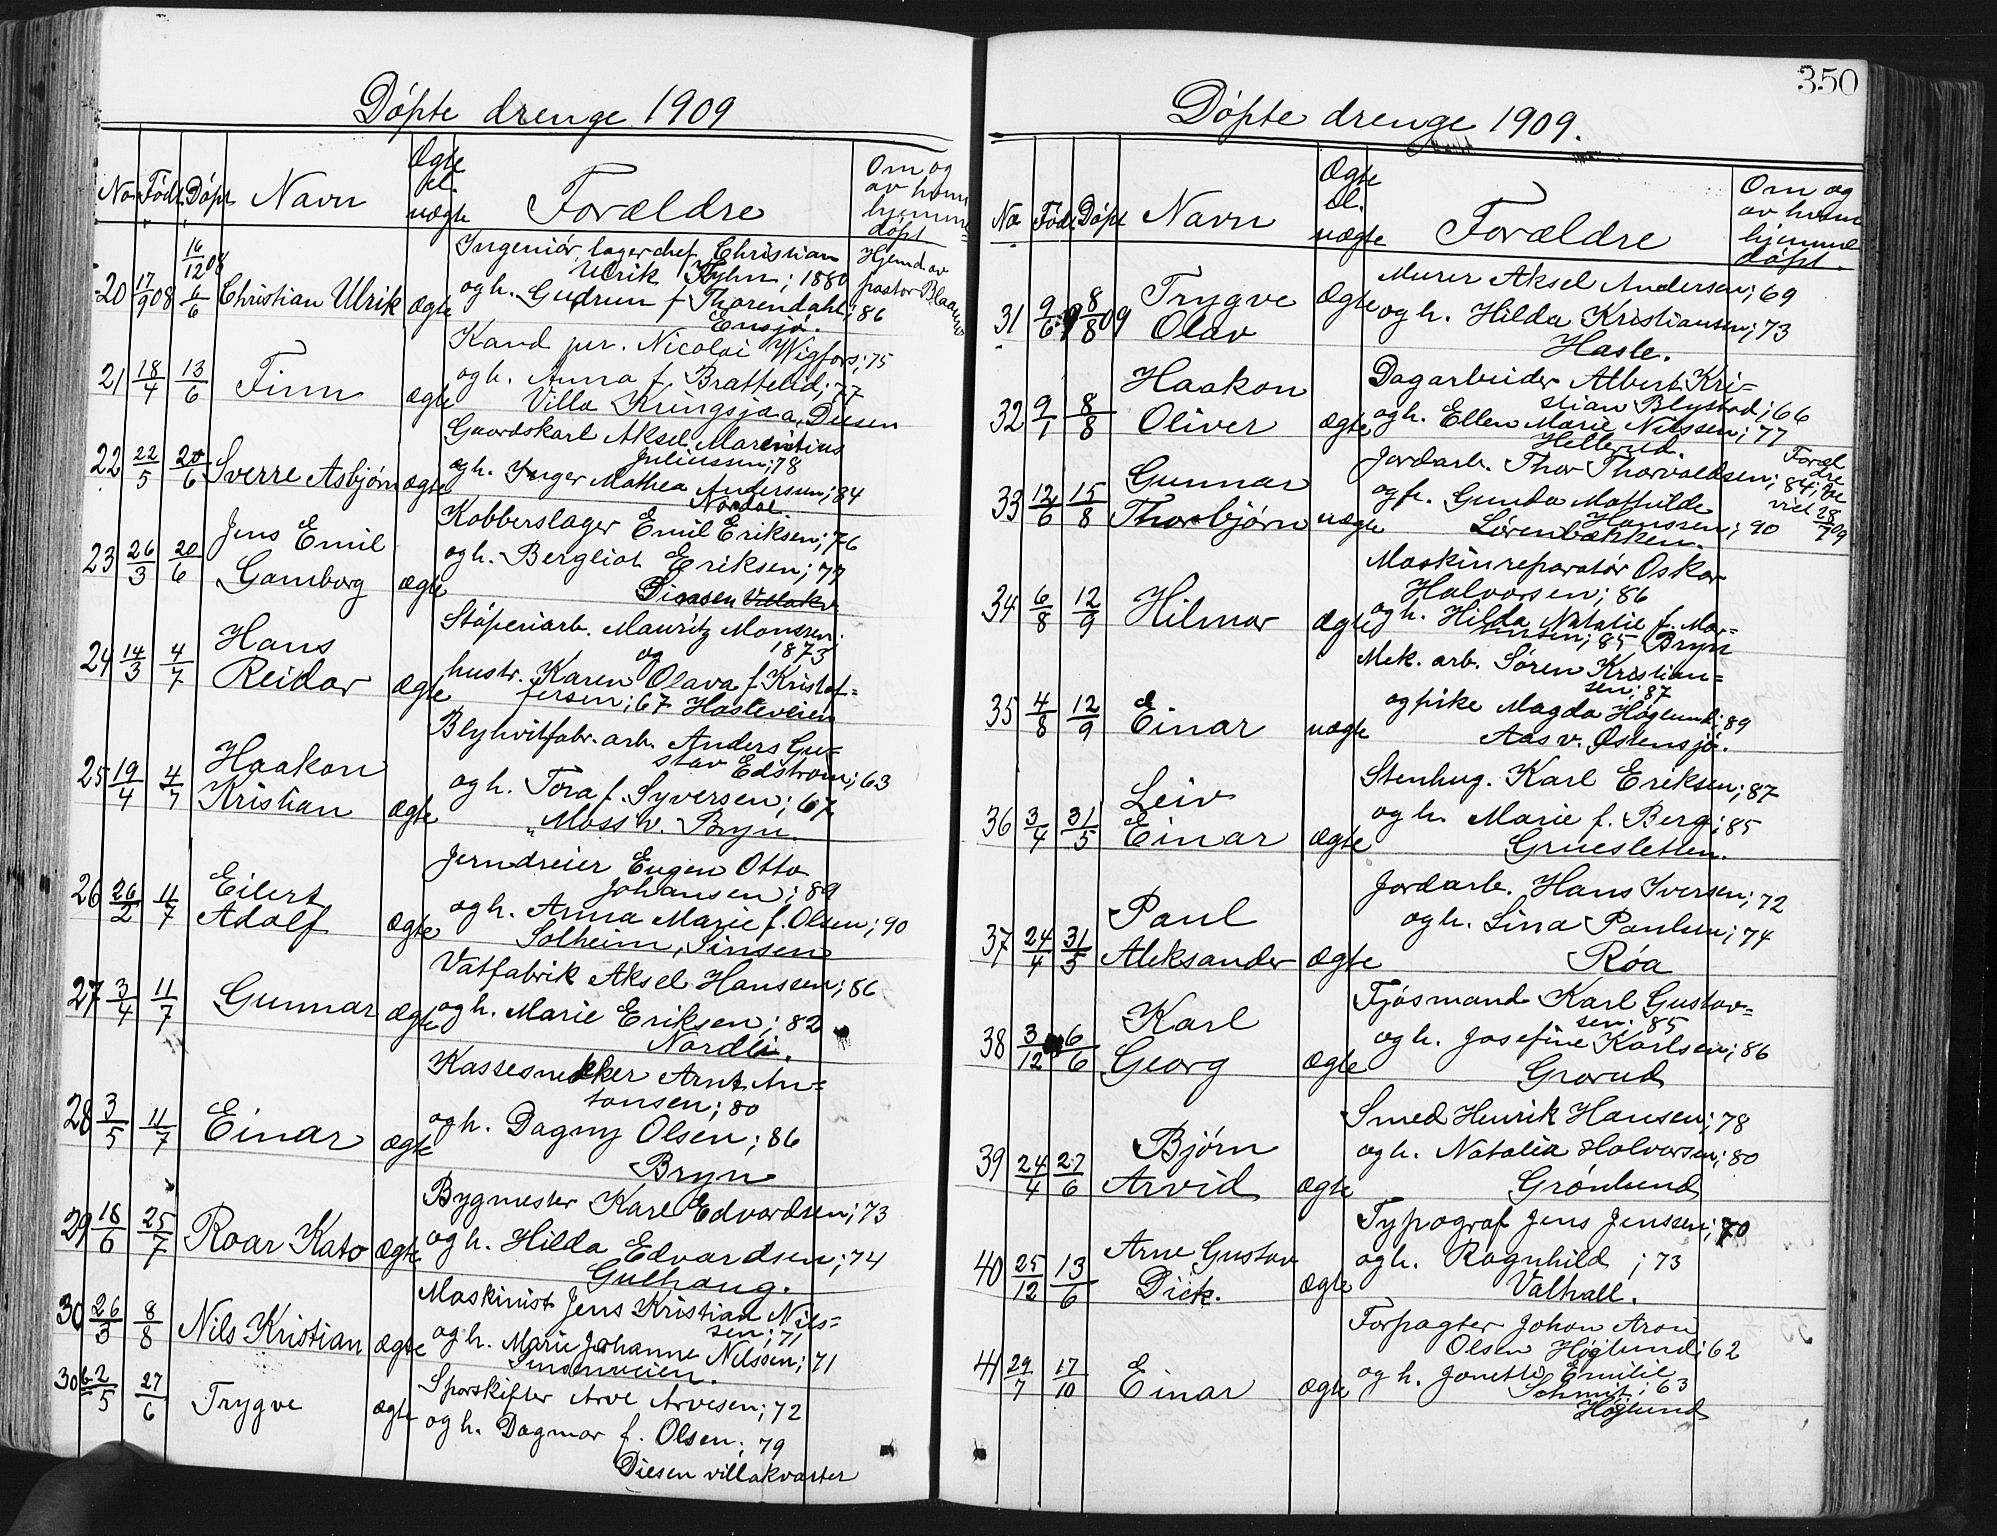 Døpte drenge 1909
No Født Døpt Navn Ægte el. uægte Forældre Om og av hvem hjemmedøpt
20 17/9 08 16/12 08 6/6 Christian Ulrik ægte Ingeniør, lagerchef Christian
Ulrik Kyhn; 1880
og h. Gudrun f Thorendahl; 86
Ensjø.
Hjemd. av
pastor Blaauw
21 18/4 13/6 Finn ægte Kand jur. Nicolai Wigfors; 75
og h. Anna f. Brattelid; 77
Villa Kringsjaa, Disen
22 22/5 20/6 Sverre Asbjørn ægte Gaardskarl Aksel Marentius
Juliussen; 78
og h. Inger Mathea Andersen; 84
Nordal
23 26/3 20/6 Jens Emil
Gamborg ægte
Kobberslager Emil Eriksen; 76
og h. Bergliot Eriksen; 77
Disen Villakv
24 14/3 4/7 Hans
Reidar ægte
Støperiarb. Mauritz Monssen.
og 1873
hustr. Karen Olava f. Kristof=
fersen; 67 Hasleveien
25 19/4 4/7 Haakon
Kristian ægte
Blyhvitfabr. arb. Anders Gu=
stav Edstrøm; 63
og h. Tora f. Syversen; 67
Moss v. Bryn.
26 26/2 11/7 Eilert
Adolf ægte
Jerndreier Eugen Otto
Johansen; 89
og h. Anna Marie f. Olsen; 90
Solheim, Sinsen
27 3/4 11/7 Gunnar ægte
Vatfabrik Aksel Hansen; 86
og h. Marie Eriksen; 82
Nordli.
28 3/5 11/7 Einar ægte
Kassesnekker Arnt An=
tonsen; 80
og h. Dagny Olsen; 86
Bryn
29 16/6 25/7 Roar Kato ægte
Bygmester Karl Edvardsen; 73
og h. Hilda Edvardsen; 74
Gulhaug.
30 26/3 8/8 Nils Kristian ægte
Maskinist Jens Kristian Nils=
sen; 71
og h. Marie Johanne Nilssen; 71
Sinsenveien.
30 b 2/5 27/6 Trygve ægte
Sporskifter Arve Arvesen; 72
og h. Dagmar f. Olsen; 79
Disen villakvarter
350
Døpte drenge 1909.
No Født Døpt Navn Ægte el. uægte Forældre Om og av hvem hjemmedøpt.
31 9/6 8/8 09 Trygve
Olav Ægte
Murer Aksel Andersen; 69
og h. Hilda Kristiansen; 73
Hasle.
32 9/1 8/8 Haakon
Oliver ægte
Dagarbeider Albert Kri=
stian Blystad; 66
og h. Ellen Marie Nilssen; 77
Hellerud.
33 12/6 15/8 Gunnar
Thorbjørn uægte
Jordarb. Thor Thorvaldsen; 84;
og p. Gunda Mathilde
Hanssen; 90
Lørenbakken.
Foræl
dre
ge
viet 28/7 09
34 6/8 12/9 Hilmar Ægte
Maskinreparatør Oskar
Halvorsen; 86
og h. Hilda Natalie f. Mor=
tinsen; 85 Bryn
35 4/8 12/9 Einar uægte
Mek. arb. Søren Kristian=
sen; 87
og pike Magda Høglund; 89
Aas v. Østensjø.
36 3/4 31/5 Leiv
Einar ægte
Stenhug. Karl Eriksen; 87
og h. Marie f. Berg; 85
Gruesletten.
37 24/4 31/5 Paul
Aleksander Ægte
Jordarb. Hans Iversen; 72
og h. Lina Paulsen; 74
Røa
38 3/12 6/6 Karl
Georg Ægte
Fjøsmand Karl Gustav=
sen; 85
og h. Josefine Karlsen; 86
Grorud
39 24/4 27/6 Bjørn
Arvid ægte
Smed Henrik Hansen; 78
og h. Natalia Halvorsen; 80
Grønlund
40 25/12 13/6 Arne Gustav
Dick. ægte
Typograf Jens Jenssen; 70
og h. Ragnhild; 73
Valhall.
41 29/7 17/10 Einar Ægte
Forpagter Johan Aron
Olsen Høglund; 62
og h. Janette Emilie
Schmit; 63
Høglund